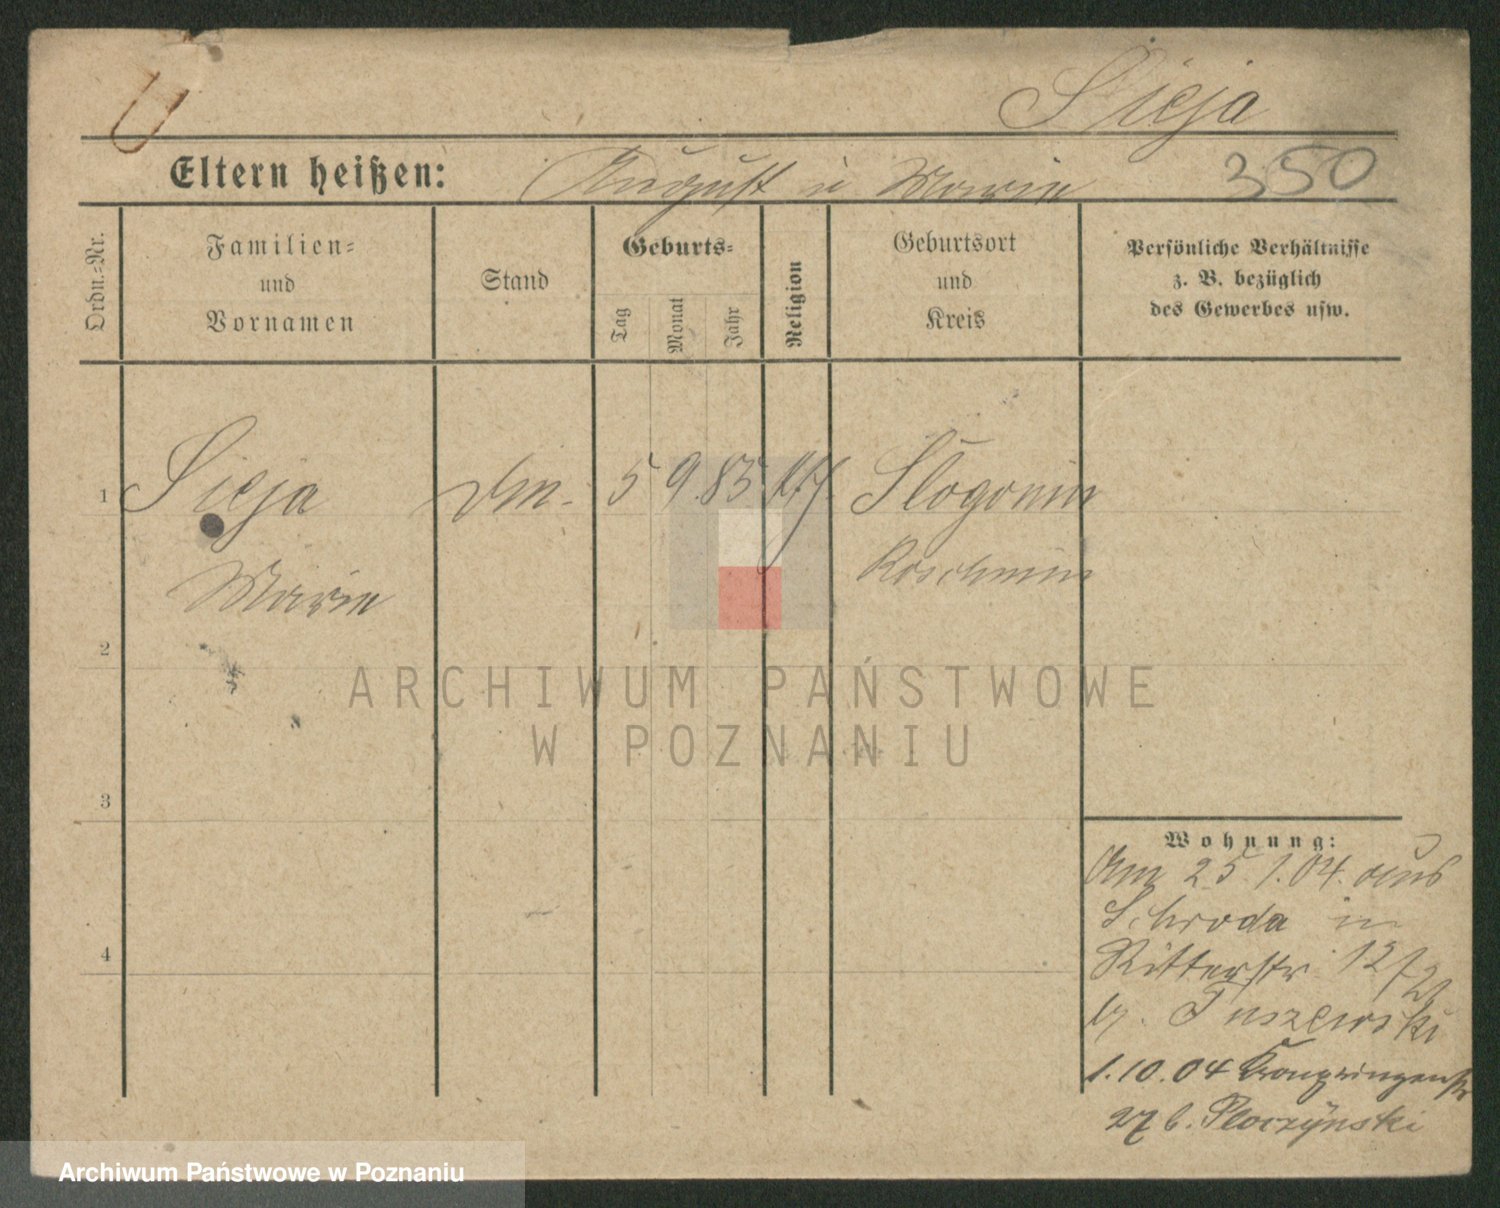 Sieja
Eltern heißen: August u Marie 350
Ordn.=Nr.
Familien=
und
Vornamen
Stand
Geburts=
Tag
Monat
Jahr
Religion
Geburtsort
und
Kreis
Persönliche Verhältnisse
z. B. bezüglich
des Gewerbes usw.
1 Sieja 5 9. 85 Slogonin
Marie Koschmin
2
3
4
Wohnung:
Am 25.1.04. aus
Schroda in
Ritterstr 12
b. Tuszewski
1.10.04 Kronprinzenstr
27 b. Ploczynski
ARCHIWUM PAŃSTWOWE
W POZNANIU
Archiwum Państwowe w Poznaniu